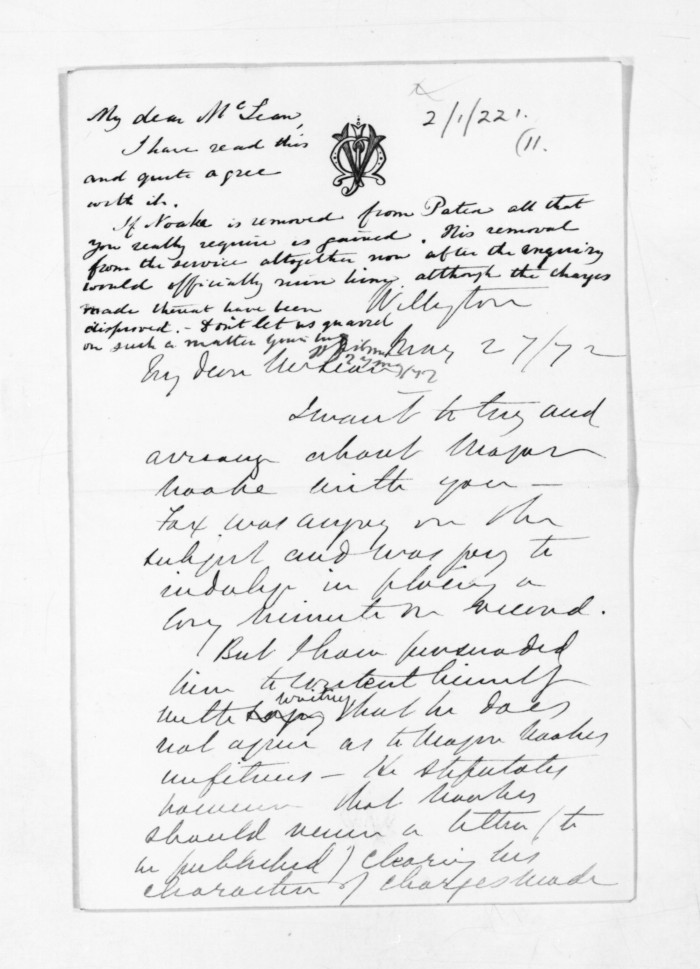 My dear McLean,
I have read this
and quite agree
with it.
2/1/22
(11.
If Noake is removed from Patea all that
you really require is gained. His removal
from the service altogether now after the enquiry
would officially ruin him, although the charges
made thereat have been
disproved. - Don't let us quarrel
on such a matter
Wellington
May 27/72
My dear McLean
I want to try and
arrange about Major
Noake with you -
Fox was angry on the
subject and was going to
indulge in placing a
long minute on record.
But I have persuaded
him to content himself
with writing that he does
not agree as to Major Noakes
unfitness - He stipulates
however that Noakes
should receive a letter (to
be published) clearing his
character of charges made